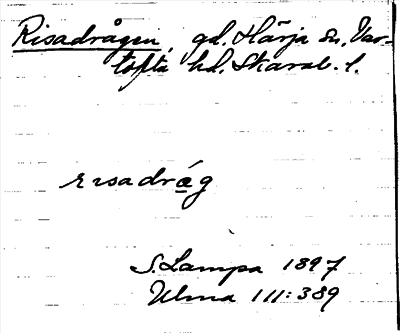 Risadrågen, gd, Härja sn, Var-
tofta hd, Skarab. l.
risadrág
S. Lampa 1897
Ulma 111:389